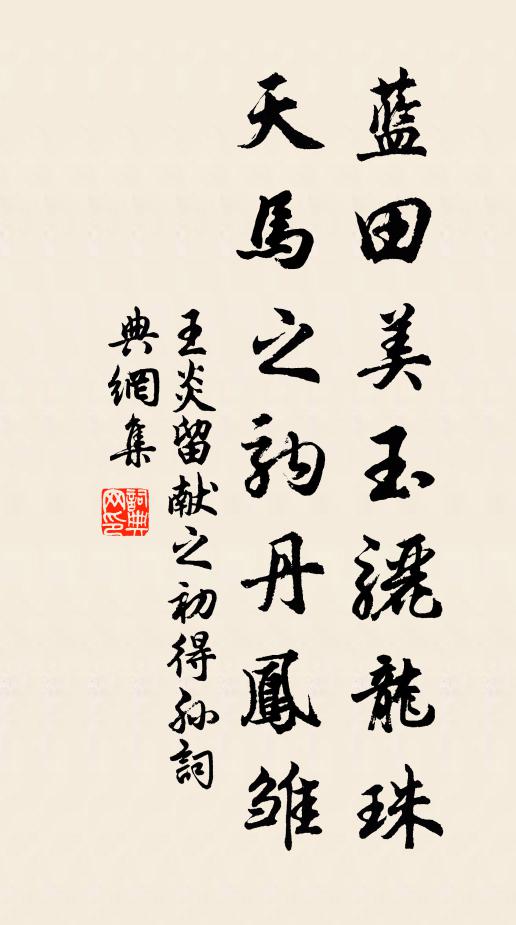 藍田美玉驪龍珠
天馬之駒丹鳳雛
王炎留献之初得孙詞
典網集
詞典
网印